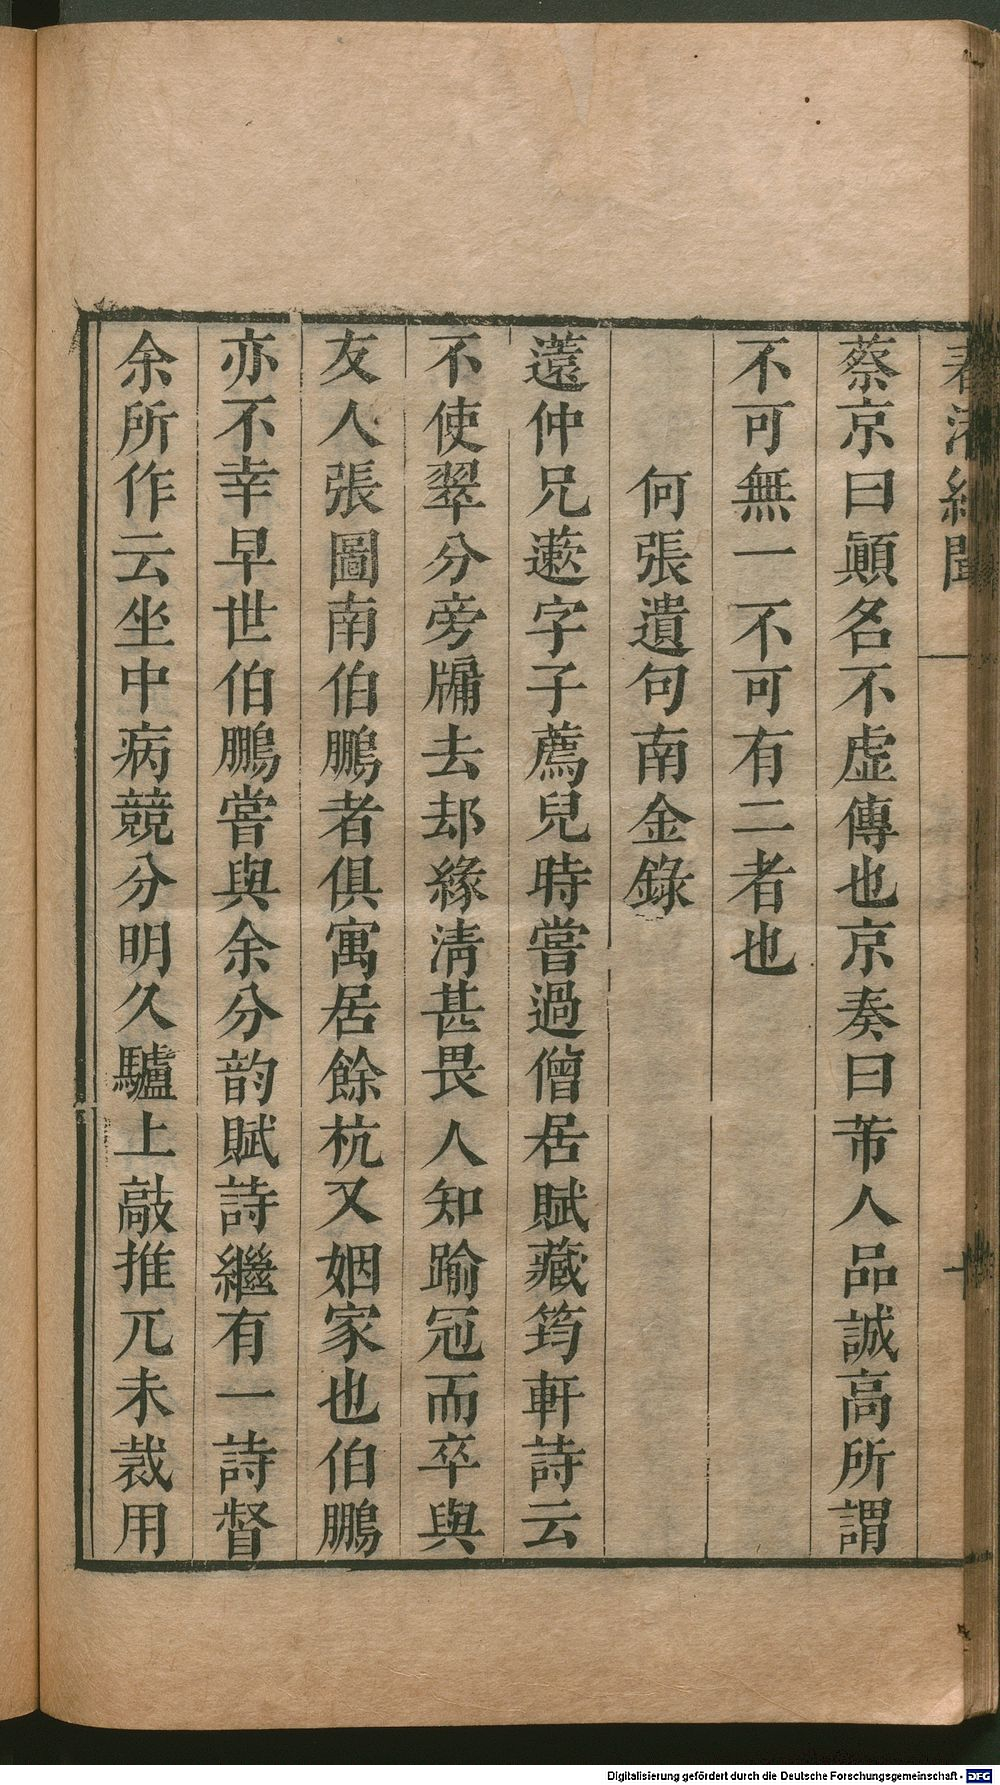 春渚紀聞
蔡京曰顚名不虛傳也京奏曰芾人品誠高所謂
不可無一不可有二者也
何張遺句南金錄
薳仲兄遬字子薦兒時嘗過僧居賦藏筠軒詩云
不使翠分旁牗去却緣淸甚畏人知踰冠而卒與
友人張圖南伯鵬者俱寓居餘杭又姻家也伯鵬
亦不幸早世伯鵬嘗與余分韵賦詩繼有一詩督
余所作云坐中病競分明久驢上敲推兀未裁用
Digitalisierung gefördert durch die Deutsche Forschungsgemeinschaft - DFG